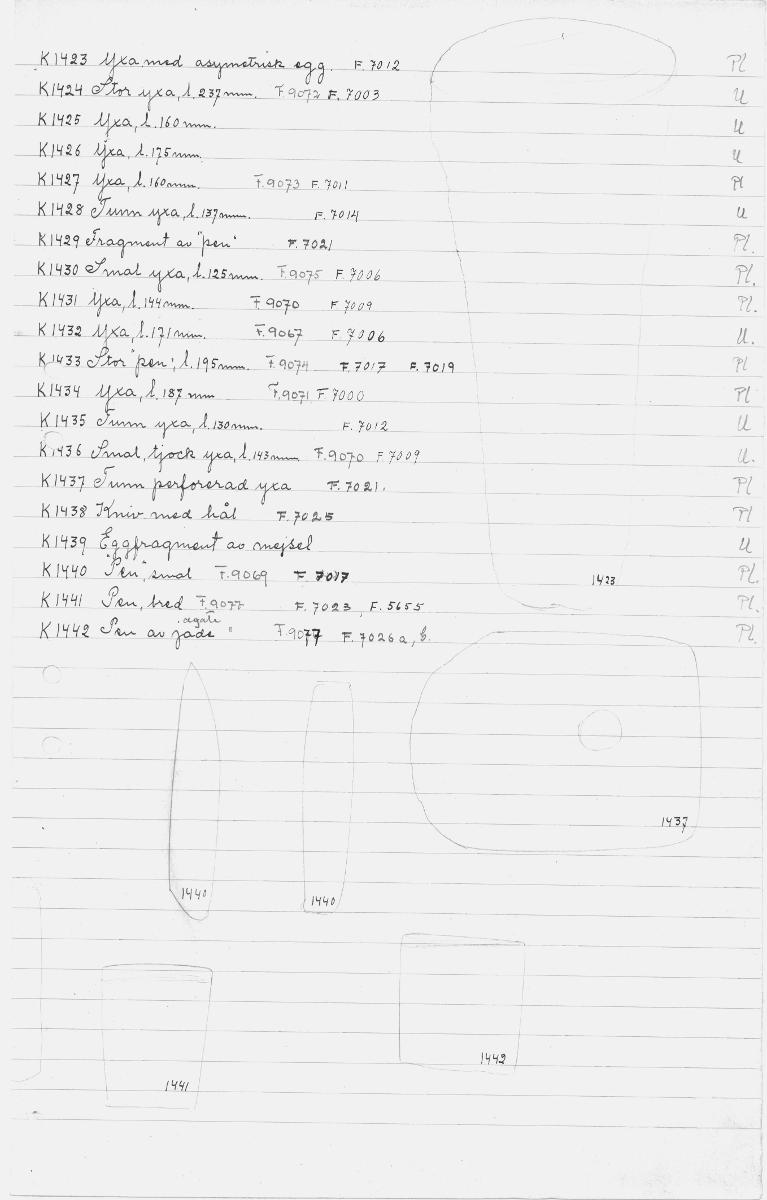 K1423 Yxa med asymetrisk egg. F.7012 Pl
K1424 Stor yxa, l. 237mm. F.9072 F.7003 U
K1425 Yxa, l. 160mm. U
K1426 Yxa, l. 175mm. U
K1427 Yxa, l. 160mm. F.9073 F.7011 Pl
K1428 Tunn yxa, l. 137mm. F.7014 U
K1429 Fragment av "pen" F.7021 Pl.
K1430 Smal yxa, l. 125mm. F.9075 F.7006 Pl.
K1431 Yxa, l. 144mm. F.9070 F.7009 Pl.
K1432 Yxa, l. 171mm. F.9067 F.7006 U.
K1433 Stor "pen", l. 195mm. F.9074 F.7017 F.7019 Pl
K1434 Yxa, l. 187mm F.9071 F.7000 Pl
K1435 Tunn yxa, l. 130mm. F.7012 U
K1436 Smal, tjock yxa, l. 143mm F.9070 F7009 U.
K1437 Tunn perforerad yxa F.7021. Pl
K1438 Kniv med hål F.7025 Pl
K1439 Eggfragment av mejsel U
K1440 "Pen", smal F.9069 F 7017 Pl.
1423
K1441 Pen, bred F.9077 F.7023, F.5655 Pl.
agate
K1442 Pen av jade " F.9077 F.7026a, b. Pl.
1437
1440 1440
1442
1441